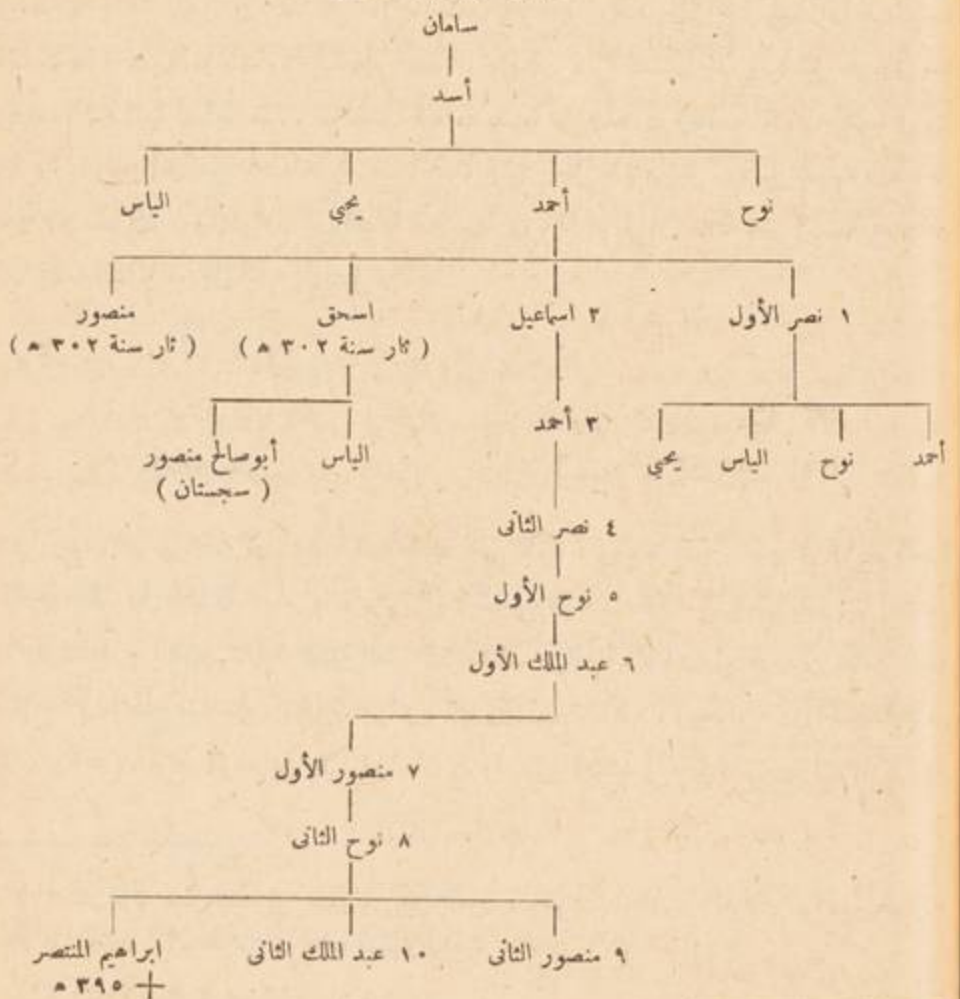 سامان
أسد
نوح أحمد يحيي الياس
١ نصر الأول ٢ اسماعيل اسحق منصور
( ثار سنة ٣٠٢ ه ) ( ثار سنة ٣٠٢ ه )
٣ أحمد
أحمد نوح الياس يحيي الياس أبو صالح منصور
( سجستان )
٤ نصر الثانى
٥ نوح الأول
٦ عبد الملك الأول
٧ منصور الأول
٨ نوح الثانى
٩ منصور الثانى ١٠ عبد الملك الثانى ابراهيم المنتصر
+ ٣٩٥ ه